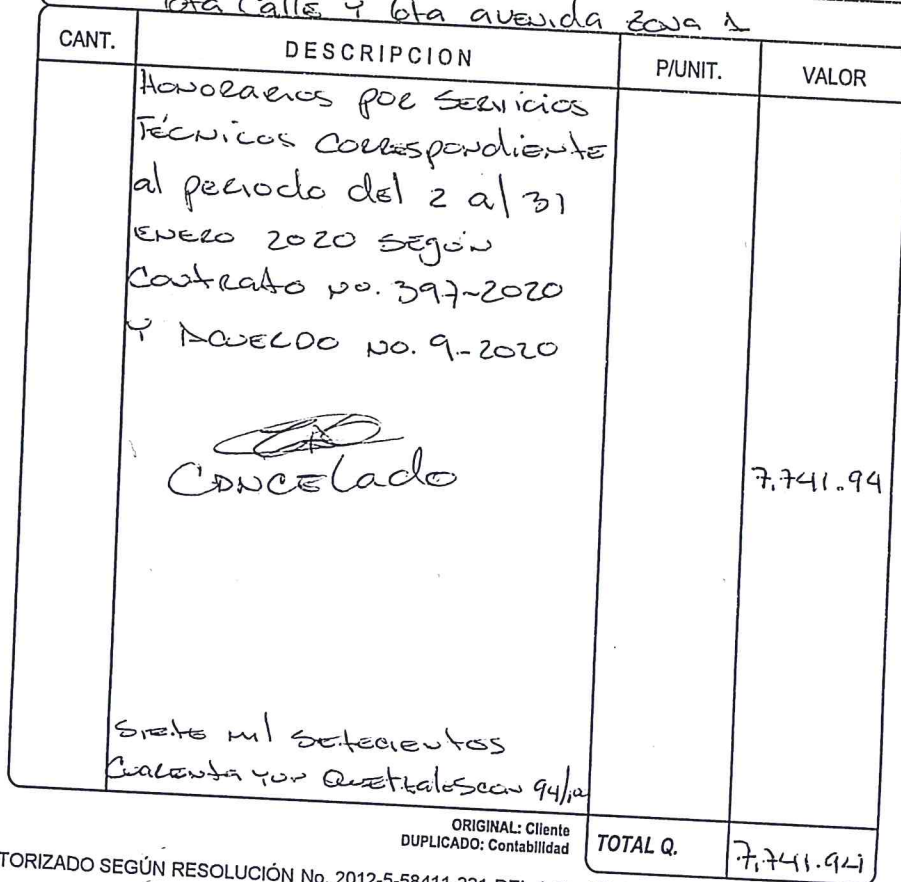 Calle y 6ta avenida zona 1
CANT. DESCRIPCION P/UNIT. VALOR
Honorarios por Servicios
Técnicos Correspondiente
al periodo del 2 al 31
ENERO 2020 Según
Contrato No. 397-2020
Y ACUERDO NO. 9-2020
CANCELado 7,741.94
Siete mil setecientos
Cuarenta y un Quetzales con 94/100
ORIGINAL: Cliente
DUPLICADO: Contabilidad
TOTAL Q. 7,741.94
TORIZADO SEGÚN RESOLUCIÓN No. 2012-5-58411-221